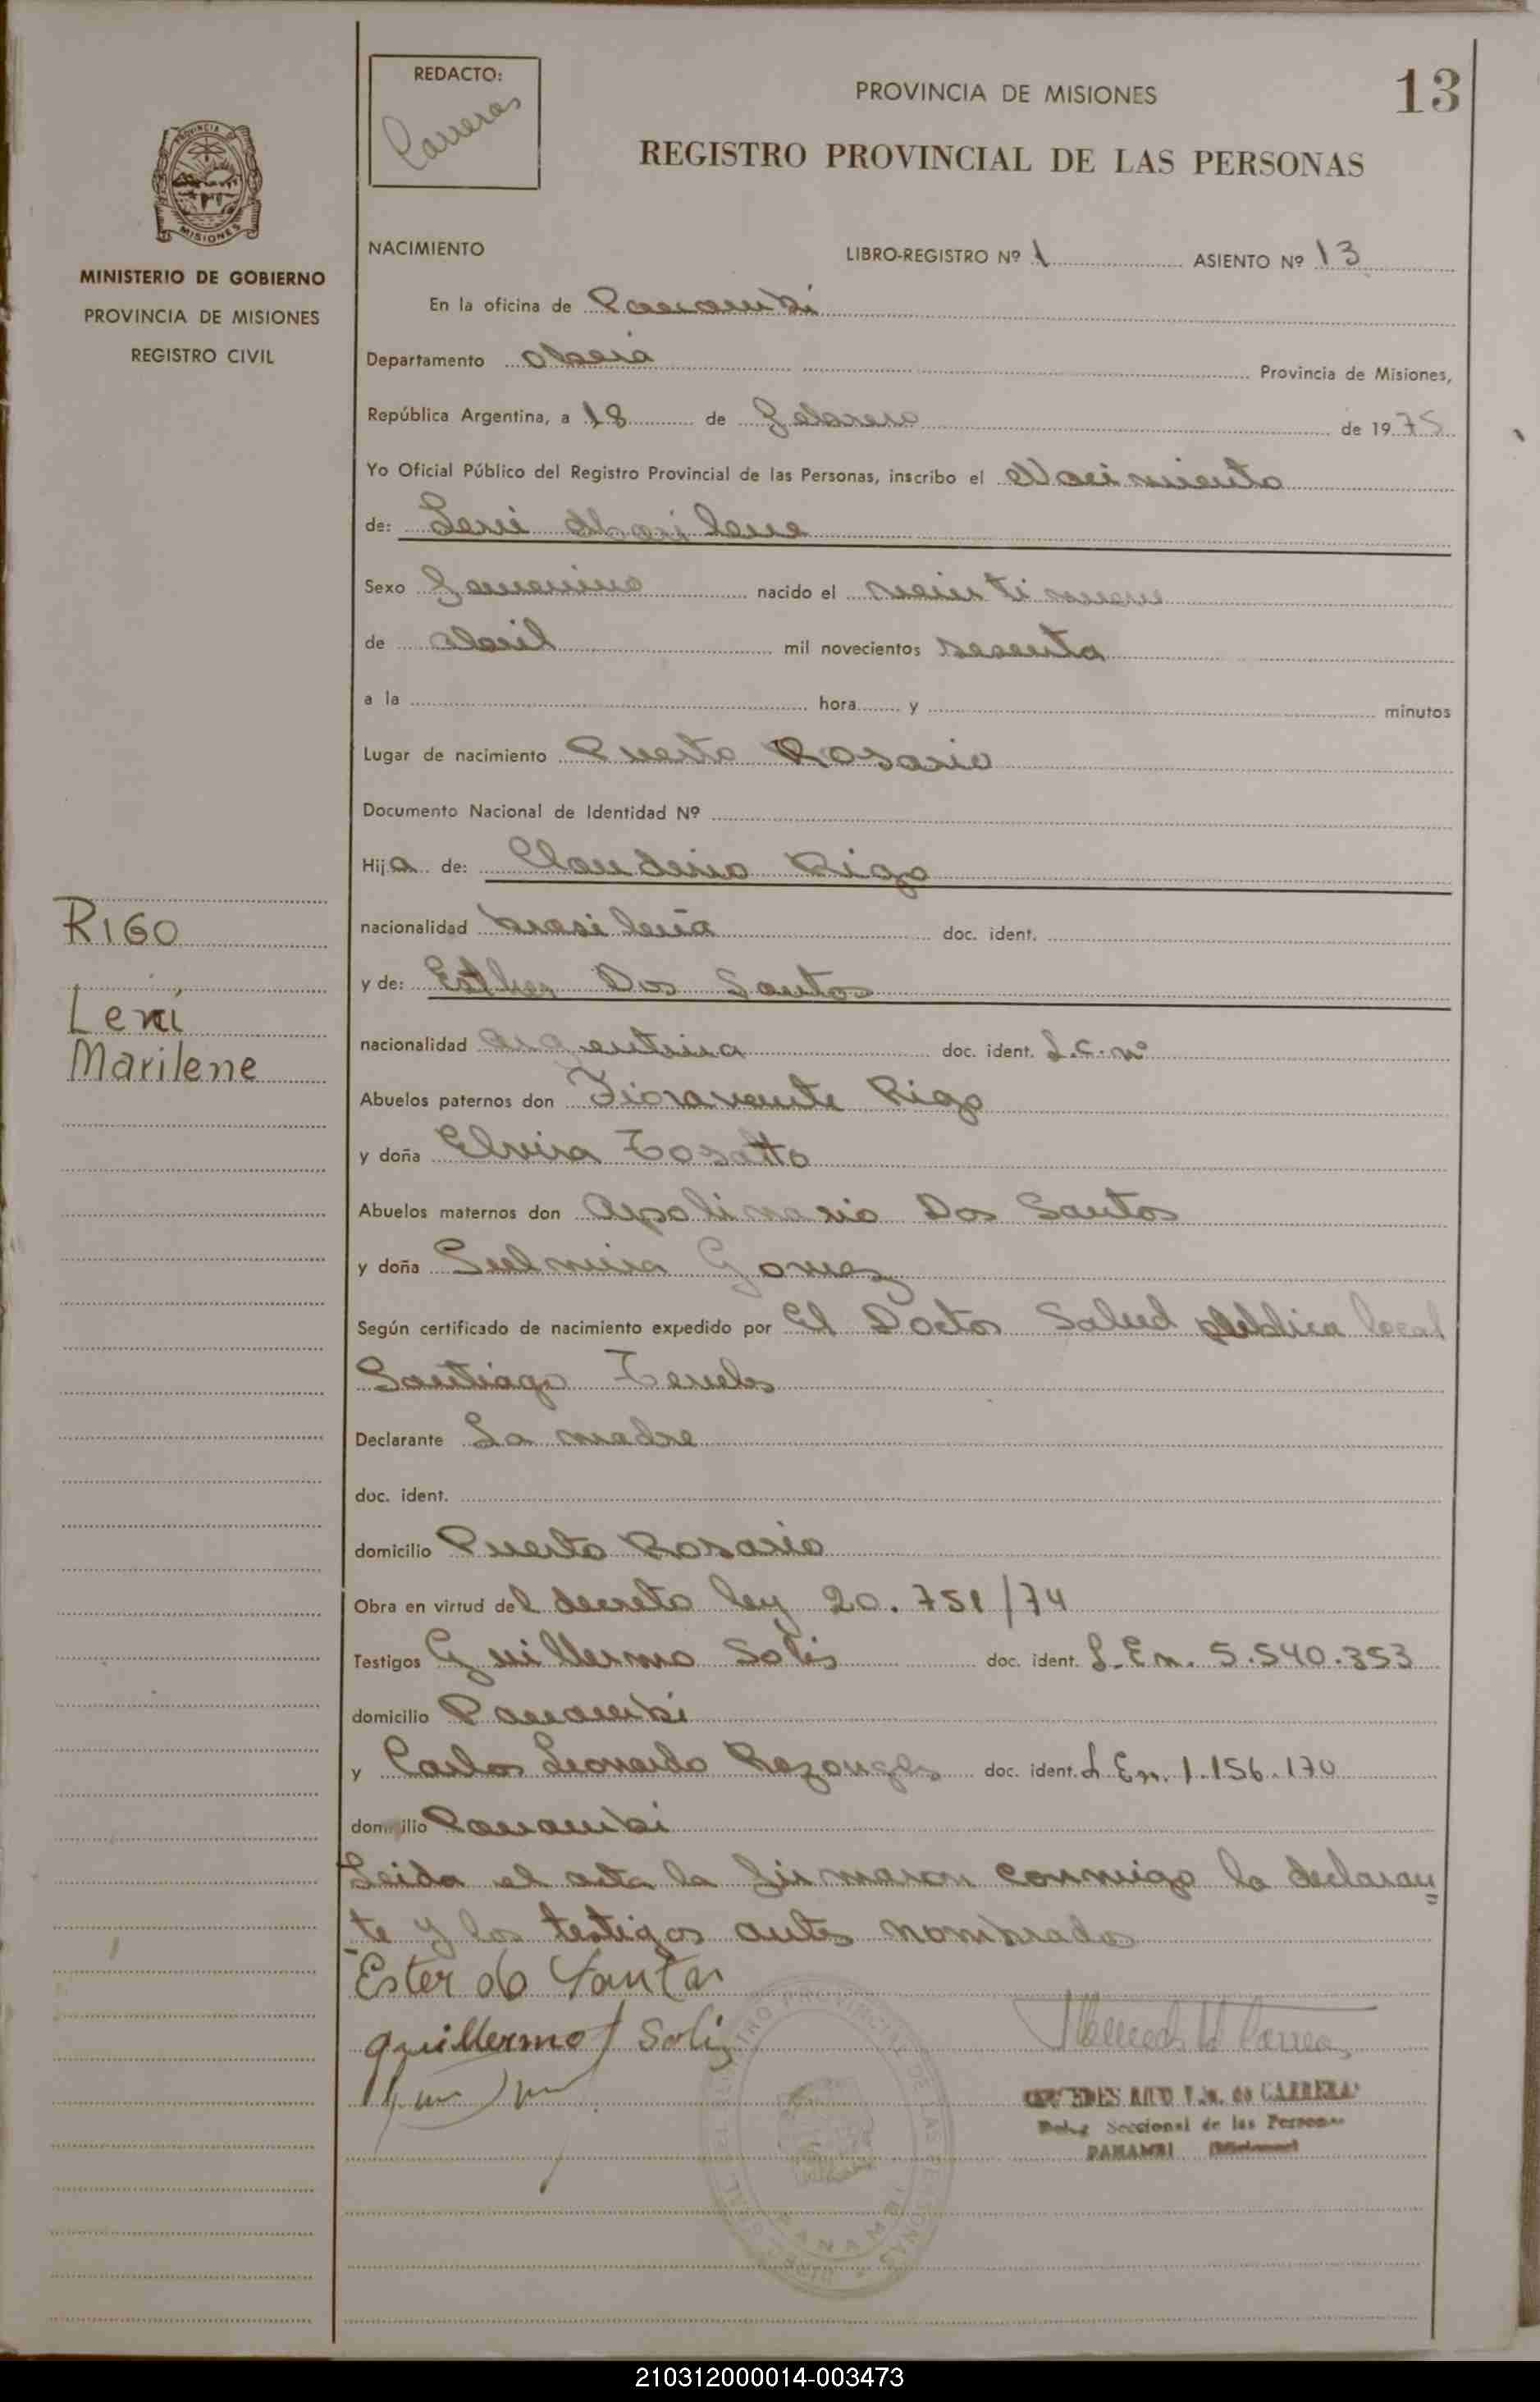 REDACTO:
Carreras
PROVINCIA DE MISIONES
13
REGISTRO PROVINCIAL DE LAS PERSONAS
PROVINCIA DE
MISIONES
MINISTERIO DE GOBIERNO
PROVINCIA DE MISIONES
REGISTRO CIVIL
NACIMIENTO LIBRO-REGISTRO Nº 1 ASIENTO Nº 13
En la oficina de Panambi
Departamento Oberá Provincia de Misiones,
República Argentina, a 18 de Febrero de 1975
Yo Oficial Público del Registro Provincial de las Personas, inscribo el Nacimiento
de: Leni Marilene
Sexo Femenino nacido el veintinueve
de Abril mil novecientos sesenta
a la hora y minutos
Lugar de nacimiento Puerto Rosario
Documento Nacional de Identidad Nº
Hija de: Claudino Rigo
nacionalidad brasileña doc. ident.
y de: Esther Dos Santos
nacionalidad argentina doc. ident. L.C. nº
Abuelos paternos don Fioravante Rigo
y doña Elvira Tosatto
Abuelos maternos don Apolinario Dos Santos
y doña Gomez
Según certificado de nacimiento expedido por El Doctor Salud publica local
Santiago
Declarante La madre
doc. ident.
domicilio Puerto Rosario
Obra en virtud del decreto ley 20.751/74
Testigos Guillermo Solis doc. ident. L.En. 5.540.353
domicilio Panambi
y Carlos Leonardo doc. ident. L En. 1.156.170
domicilio Panambi
Leida el acta la firmaron conmigo la declaran
te y los testigos antes nombrados
Ester do Santos
guillermo Soliz
Delg Seccional de las Personas
PANAMBI (Misiones)
RIGO
Leni
Marilene
210312000014-003473